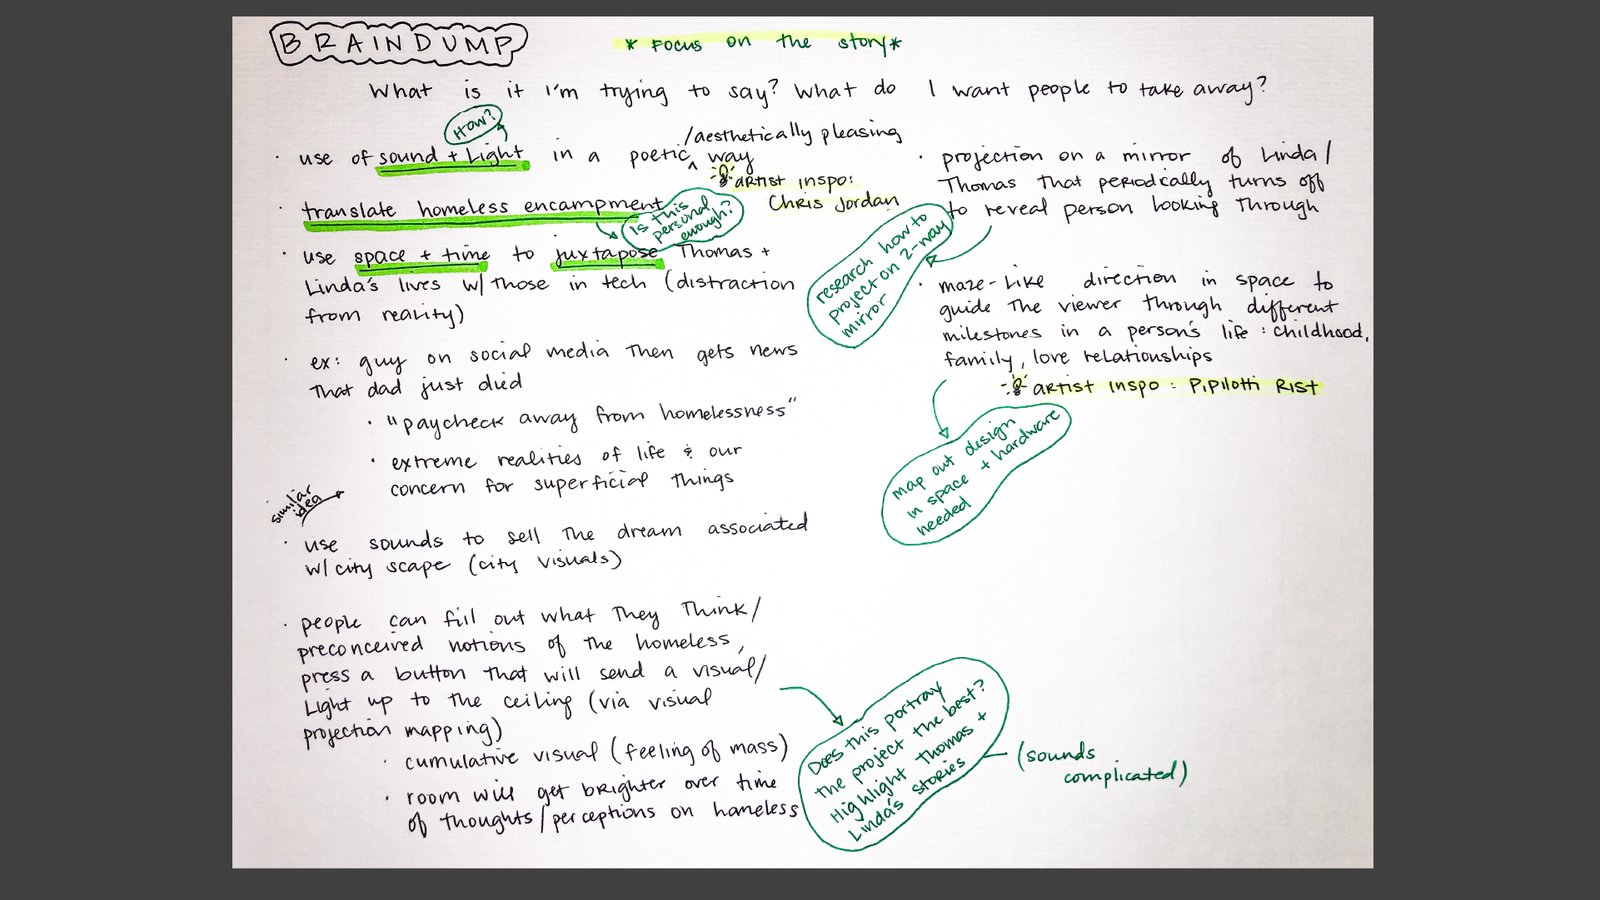 BRAINDUMP
* Focus on the story *
What is it I'm trying to say? What do I want people to take away?
How?
· use of sound + Light in a poetic ^ way
/aesthetically pleasing
artist inspo:
Chris Jordan
· translate homeless encampment
Is this
personal
enough?
· use space + time to juxtapose Thomas +
Linda's lives w/ those in tech (distraction
from reality)
· ex: guy on social media then gets news
that dad just died
· "paycheck away from homelessness"
· extreme realities of life & our
concern for superficial things
similar
idea
· use sounds to sell the dream associated
w/ city scape (city visuals)
· people can fill out what they think/
preconceived notions of the homeless,
press a button that will send a visual/
Light up to the ceiling (via visual
projection mapping)
· cumulative visual (feeling of mass)
· room will get brighter over time
of thoughts/perceptions on homeless
Does this portray
the project the best?
Highlight Thomas +
Linda's stories
(sounds
complicated)
· projection on a mirror of Linda/
Thomas that periodically turns off
to reveal person looking through
research how to
project on 2-way
mirror
· maze-like direction in space to
guide the viewer through different
milestones in a person's life : childhood,
family, love relationships
artist inspo : Pipilotti Rist
map out design
in space + hardware
needed